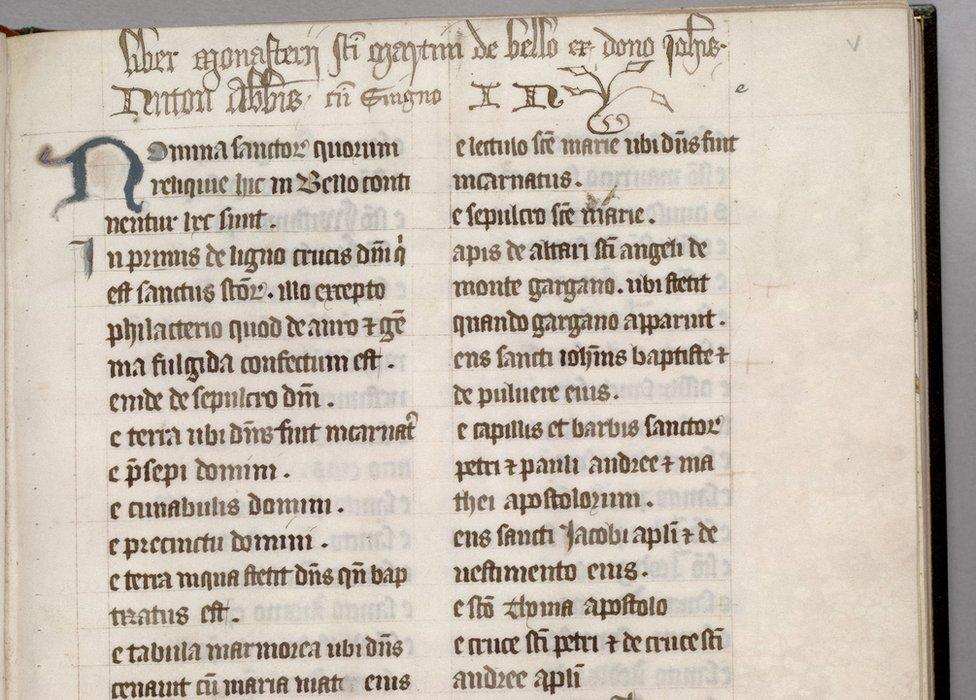 liber monasterij sc̄i martini de bello ex dono joh̄is
Nuton abb̄is cū signo I N
Nomina sanctoꝝ quorum
reliquie hic in Bello conti
nentur hec sunt.
In primis de ligno crucis dn̄i q̇
est sanctus sc̄oꝝ. illo excepto
philacterio quod de auro ⁊ gē
ma fulgida confectum est.
emde de sepulcro dn̄i.
e terra ubi dn̄s fuit incarnat᷒
e p̄sepi domini.
e cunabulis domini.
e precinctu domini.
e terra in qua stetit dn̄s qn̄ bap
tizatus est.
e tabula marmorea ubi dn̄s
cenauit cū maria mat᷒ eius
e lectulo sc̄e marie ubi dn̄s fuit
incarnatus.
e sepulcro sc̄e marie.
apis de altari sc̄i angeli de
monte gargano. ubi stetit
quando gargano apparuit.
ens sancti ioh̄nis baptiste ⁊
de puluere eius.
e capillis et barbis sanctoꝝ
petri ⁊ pauli andree ⁊ ma
thei apostolorum.
ens sancti Jacobi apl̄i ⁊ de
uestimento eius.
e sc̄o thoma apostolo
e cruce sc̄i petri ⁊ de cruce sc̄i
andree apl̄i